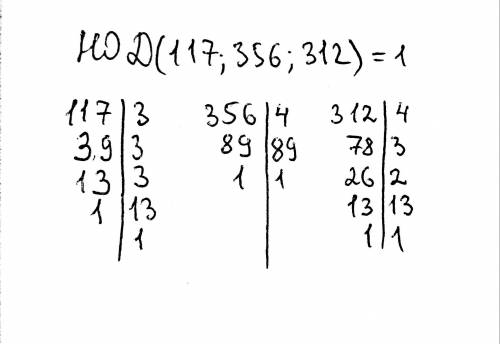 НОД(117; 356; 312) = 1
117 | 3 356 | 4 312 | 4
3,9 | 3 89 | 89 78 | 3
13 | 3 1 | 1 26 | 2
1 | 13 13 | 13
| 1 1 | 1